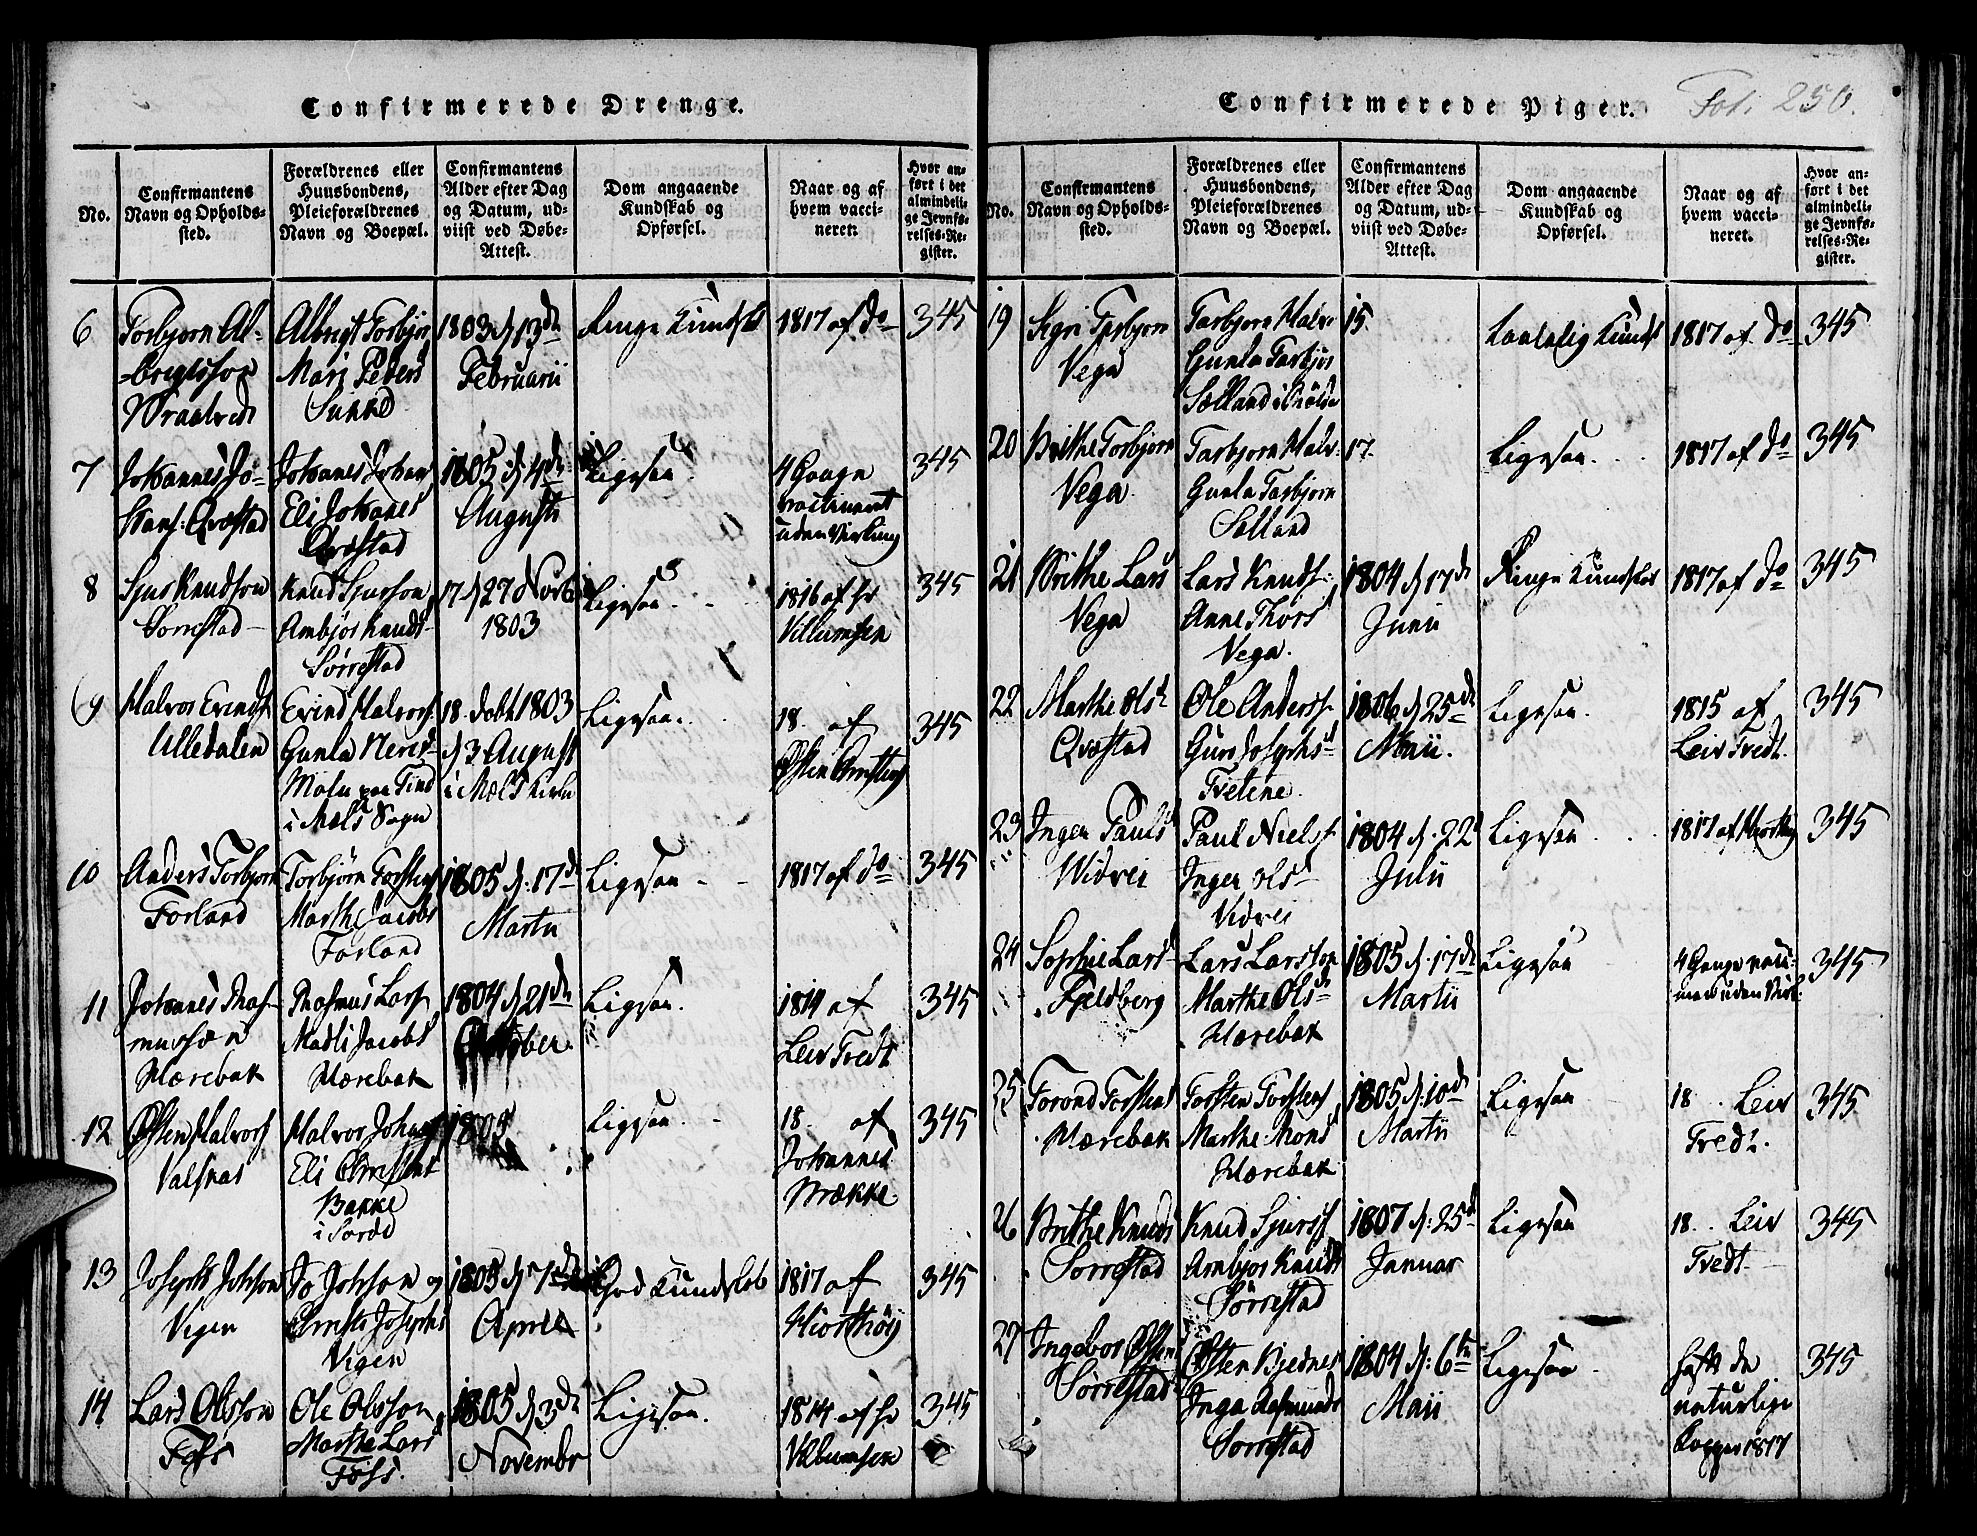 Confirmerede Drenge.
No.
Confirmantens Navn og Opholds-sted.
Forældrenes eller Huusbondens, Pleieforældrenes Navn og Boepæl.
Confirmantens Alder efter Dag og Datum, ud-viist ved Døbe-Attest.
Dom angaaende Kundskab og Opførsel.
Naar og af hvem vacci-neret.
Hvor an-ført i det almindeli-ge Jevnfø-relses-Re-gister.
6
Torbjorn Al-
brigtsson
Albrigt Torbjor
Mari Peders
1803 d 13de
Februarii
Ringe Kundsk
1817 af do
345
7
Johannes Jo-
hans. Qvæstad
Johannes Johan
Eli Johanes
Qvæstad
1805 d. 4de
Augusti
Ligesaa
4 Gange
vaccineret
uden Virkning
345
8
Sjur Knudson
Sorrestad
Knud Sjursson
Ambjor Knuds
Sørrestad
17 d 27 Novb
1803
Ligesaa
1816 af hr
Villumsen
345
9
Halvor Erinds
Ulledalen
Erind Halvors
Gunla Nered
Mæla paa Tind
i Mæls Sogn
18. dobt 1803
d 3 August
i Mæls Kirke
Ligesaa.
18. af
Østen
345
10
Anders Torbjorn
Forland
Torbjørn Torstens
Marthe Jacobs
Forland
1805 d. 17de
Martii
Ligesaa
1817 af do
345
11
Johannes Ras-
mussen
Hærebak
Rasmus Lars
Madli Jacobs
Hærebak
1804 d 21de
October
Ligesaa.
1814 af
Leiv Tredt
345
12
Østen Halvors
Valsnas
Halvor Johans
Eli Christens
Bakke
1805
Ligesaa
18. af
Johannes
Brække
345
13
Joseph Johsson
Vigen
Jo Johsson og
Christi Josephs
Vigen
1805 d 7de
April
God Kundskab
1817 af
Hiorthøy
345
14
Lars Olsson
Foss
Ole Olsson
Marthe Lars
Foss.
1805 d 3de
Novembr
Ligesaa.
1814 af hr
Villumsen
345
Confirmerede Piger.
Fol. 250.
No.
Confirmantens Navn og Opholds-sted.
Forældrenes eller Huusbondens, Pleieforældrenes Navn og Boepæl.
Confirmantens Alder efter Dag og Datum, ud-viist ved Døbe-Attest.
Dom angaaende Kundskab og Opførsel.
Naar og af hvem vacci-neret.
Hvor an-ført i det almindeli-ge Jevnfø-relses-Re-gister.
19
Sigri Torbjorn
Vega
Torbjorn Halv
Gunla Torbjor
15
Kundsk
1817 af do
345
20
Brithe Torbjorn
Vega
Torbjorn Halv
Gunla Torbjorn
Solland
17.
Ligesaa
1817 af do
345
21
Brithe Lars
Vega
Lars Knuds
Anne Thors
Vega.
1804 d 17de
Junii
Ringe Kundskab
1817 af do
345
22
Marthe Ols
Qvæstad
Ole Anders
Guro Josephs
Tvetene.
1806 d 25de
Maii.
Ligesaa.
1815 af
Leiv Tredt.
345
23
Inger Pauls
Widvei
Paul Niels
Inger Ols
Vidvei
1804 d. 22
Julii
Ligesaa
1817 af Hiorthøy
345
24
Sophie Lars
Fjeldberg
Lars Larsson
Marthe Ols
Hærebak
1805 d. 17de
Martii
Ligesaa
4 Gange vacci-
neret uden Virk.
345
25
Torond Torstens
Hærebak
Torsten Torstens
Marthe Mons
Hærebak
1805 d. 10de
Martii
Ligesaa
18 . Leiv
Tredt.
345
26
Brithe Knuds
Sorrestad
Knud Sjurss
Ambjor Knuds
Sørrestad
1807 d. 25d
Januar
Ligesaa
18. Leiv
Tredt
345
27
Ingebor Østen
Sørrestad
Østen Bjednes
Inga Asmunds
Sorrestad
1804 d. 6te
Maii
Ligesaa
haft de
naturlige
Kopper 1817
345